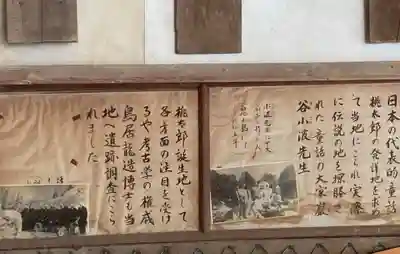 日本の代表的童話
桃太郎の発祥地を求め
て当地にこられ実際
に伝説の地を探勝さ
れた童話の大家巖
谷小波先生
桃太郎誕生地として
各方面の注目を受け
るや考古学の権威
鳥居龍造博士も当
地へ遺跡調査にこら
れました